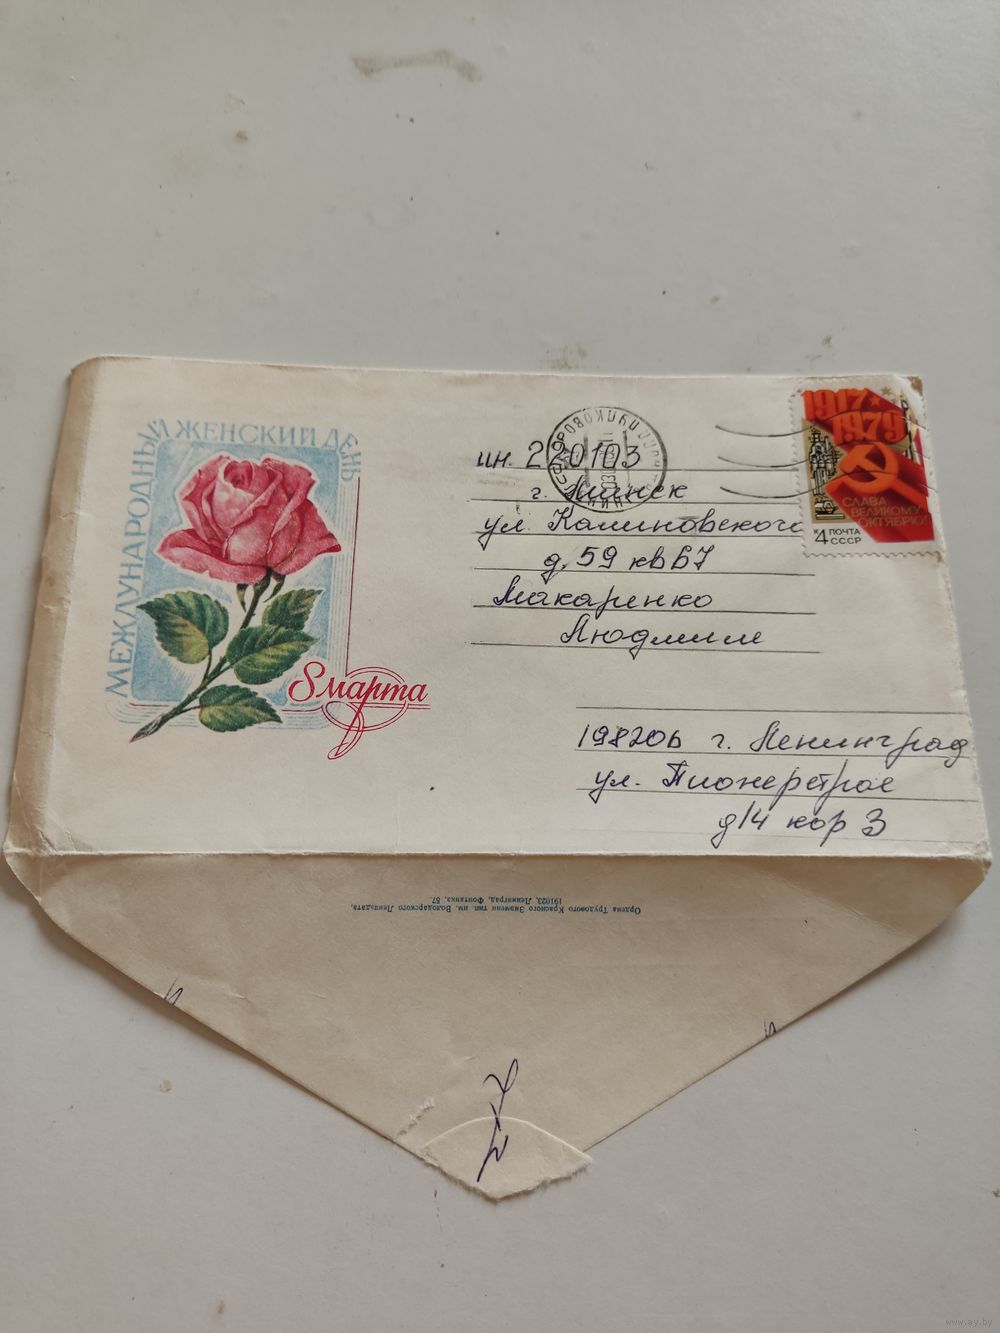 МЕЖДУНАРОДНЫЙ ЖЕНСКИЙ ДЕНЬ
8 марта
1917
1979
СЛАВА
ВЕЛИКОМУ
ОКТЯБРЮ!
К4 ПОЧТА
СССР
ин. 220103
г. Минск
ул. Калиновского
д. 59 кв 67
Макаренко
Людмиле
198206 г. Ленинград
ул. Пионерстроя
д 14 кор 3
Ордена Трудового Красного Знамени тип. им. Володарского Лениздата,
191023, Ленинград, Фонтанка, 57.
www.ay.by